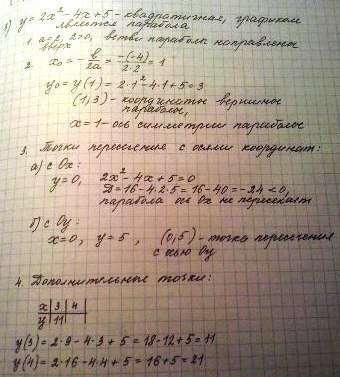 1) y = 2x² - 4x + 5 - квадратичная, графиком
является парабола
1. a = 2, 2>0, ветви параболы направлены
вверх
2. x₀ = -b/2a = -(-4)/2·2 = 1
y₀ = y(1) = 2·1² - 4·1 + 5 = 3
(1;3) - координаты вершины
параболы,
x = 1 - ось симметрии параболы
3. Точки пересечения с осями координат:
а) с Ox:
y = 0, 2x² - 4x + 5 = 0
D = 16 - 4·2·5 = 16 - 40 = -24 < 0,
парабола ось Ox не пересекает
б) с Oy:
x = 0, y = 5, (0;5) - точка пересечения
с осью Oy
4. Дополнительные точки:
x | 3 | 4
y | 11 |
y(3) = 2·9 - 4·3 + 5 = 18 - 12 + 5 = 11
y(4) = 2·16 - 4·4 + 5 = 16 + 5 = 21